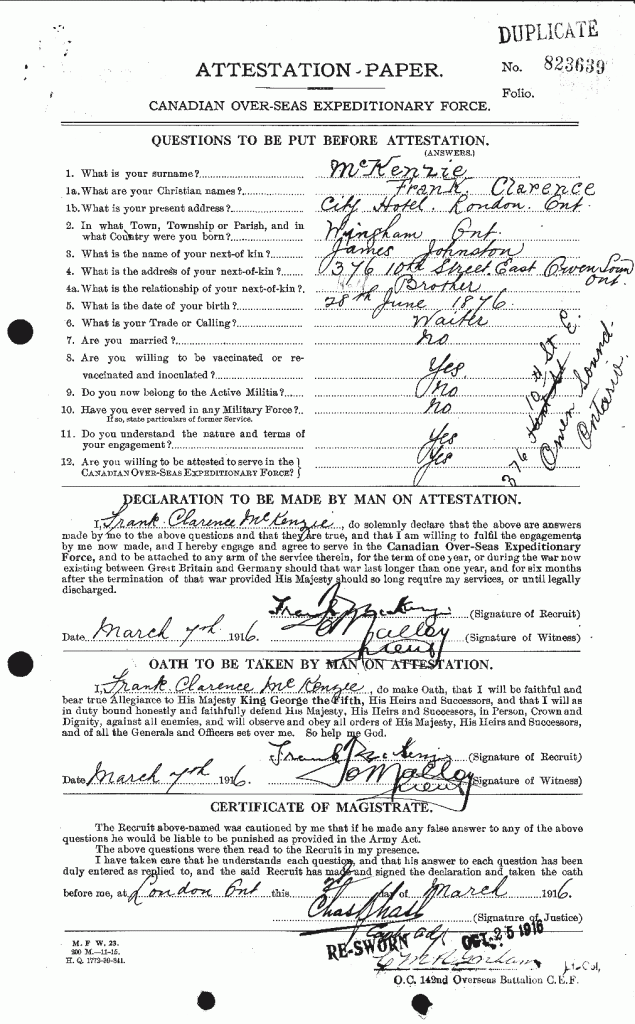 DUPLICATE
ATTESTATION-PAPER.
No. 823639
Folio.
CANADIAN OVER-SEAS EXPEDITIONARY FORCE.
QUESTIONS TO BE PUT BEFORE ATTESTATION.
(ANSWERS.)
1. What is your surname? McKenzie
1a. What are your Christian names? Frank Clarence
1b. What is your present address? City Hotel. London. Ont.
2. In what Town, Township or Parish, and in
what Country were you born? Wingham Ont
3. What is the name of your next-of-kin? James Johnston
4. What is the address of your next-of-kin? 376 10th Street East Owen Soun
Ont.
4a. What is the relationship of your next-of-kin? Brother
5. What is the date of your birth? 28th June 1876.
6. What is your Trade or Calling? Waiter
7. Are you married? No
8. Are you willing to be vaccinated or re-
vaccinated and inoculated? Yes
9. Do you now belong to the Active Militia? No
10. Have you ever served in any Military Force? No
If so, state particulars of former Service.
11. Do you understand the nature and terms of
your engagement? Yes
12. Are you willing to be attested to serve in the
CANADIAN OVER-SEAS EXPEDITIONARY FORCE? Yes
376 10th St E.
Owen Sound
Ontario.
DECLARATION TO BE MADE BY MAN ON ATTESTATION.
I, Frank Clarence McKenzie, do solemnly declare that the above are answers
made by me to the above questions and that they are true, and that I am willing to fulfil the engagements
by me now made, and I hereby engage and agree to serve in the Canadian Over-Seas Expeditionary
Force, and to be attached to any arm of the service therein, for the term of one year, or during the war now
existing between Great Britain and Germany should that war last longer than one year, and for six months
after the termination of that war provided His Majesty should so long require my services, or until legally
discharged.
Frank McKenzie (Signature of Recruit)
Date March 7th 1916. O'Malley Lieut (Signature of Witness)
OATH TO BE TAKEN BY MAN ON ATTESTATION.
I, Frank Clarence McKenzie, do make Oath, that I will be faithful and
bear true Allegiance to His Majesty King George the Fifth, His Heirs and Successors, and that I will as
in duty bound honestly and faithfully defend His Majesty, His Heirs and Successors, in Person, Crown and
Dignity, against all enemies, and will observe and obey all orders of His Majesty, His Heirs and Successors,
and of all the Generals and Officers set over me. So help me God.
Frank McKenzie (Signature of Recruit)
Date March 7th 1916. O'Malley Lieut (Signature of Witness)
CERTIFICATE OF MAGISTRATE.
The Recruit above-named was cautioned by me that if he made any false answer to any of the above
questions he would be liable to be punished as provided in the Army Act.
The above questions were then read to the Recruit in my presence.
I have taken care that he understands each question, and that his answer to each question has been
duly entered as replied to, and the said Recruit has made and signed the declaration and taken the oath
before me, at London Ont this day of March 1916.
(Signature of Justice)
RE-SWORN OCT 25 1916
M. F. W. 23.
200 M.-11-15.
H. Q. 1772-39-841.
Lt-Col,
O.C. 142nd Overseas Battalion C.E.F.